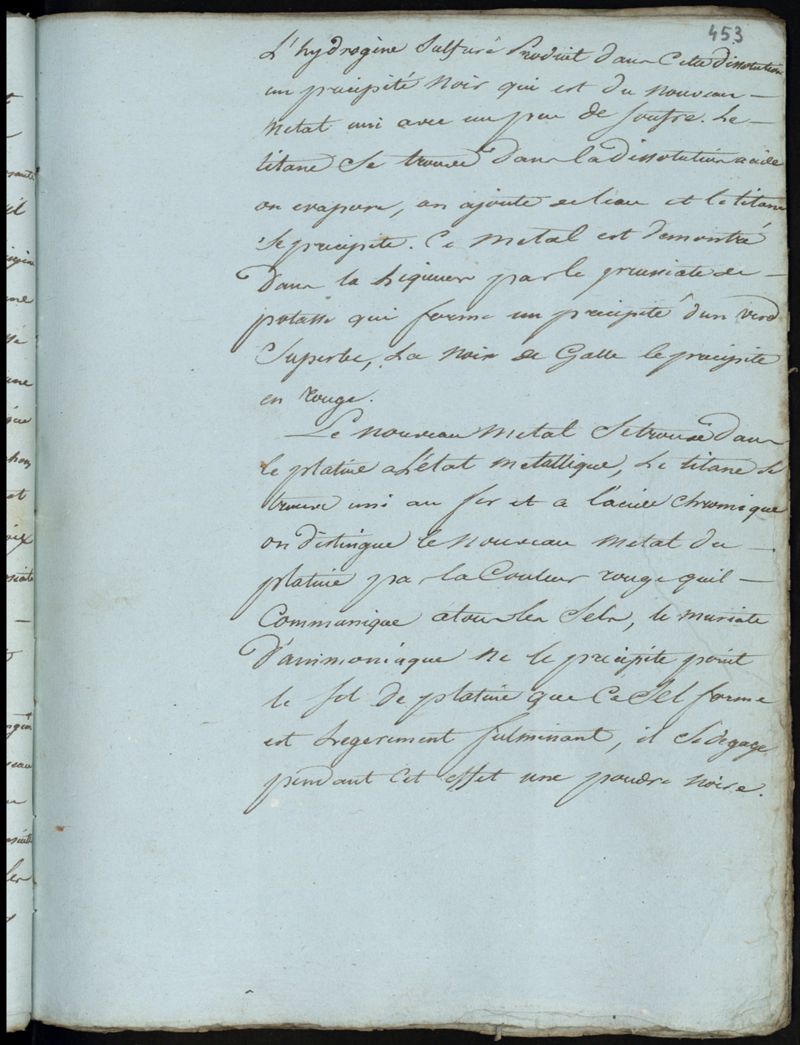 453
L'hydrogène Sulfuré Produit dans Cette dissolution
un precipité Noir qui est du nouveau —
Metal uni avec un peu de Soufre. Le —
titane Se trouve dans la dissolution acide
on evapore, on ajoute de leau et le titane
Se precipite. Ce Metal est demontré
Dans la Liqueur par le prussiate de —
potasse qui forme un precipité d'un verd
Superbe, La Noix de Galle le precipite
en rouge.
Le nouveau Metal Se trouve dans
le platine a L'état Metallique, Le titane Se
trouve uni au fer et a l'acide Chromique
on distingue le Nouveau Metal du —
platine par la Couleur rouge quil —
Communique a tous les Sels, le muriate
D'ammoniaque Ne le precipite point
le Sel de platine que Ce Sel forme
est Legerement fulminant, il Se degage
pendant Cet effet une poudre Noire.